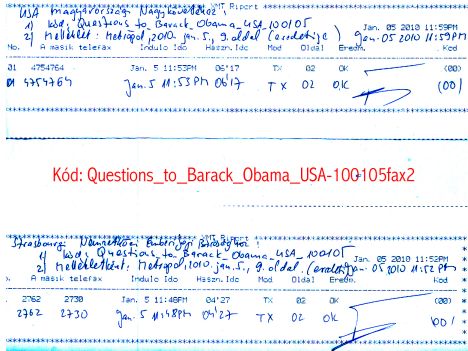 USA magyarországi Nagykövetséghez: XMT Riport
1) kód, Questions_to_Barack_Obama_USA_100105 Jan. 05 2010 11:59PM
2) Melléklet: Metropol, 2010. jan. 5., 9. oldal (eredetije) Jan. 05 2010 11:59PM
No. A másik telefax Indulo Ido Haszn.Ido Mod Oldal Eredm. Kod
01 4754764 Jan. 5 11:53PM 06'17 TX 02 OK (00)
01 4754764 Jan 5 11:53PM 06'17 TX 02 OK (00)
Kód: Questions_to_Barack_Obama_USA-100105fax2
Strasbourgi Nemzetközi Emberijogi Bírósághoz: XMT Riport
1) kód: Questions_to_Barack_Obama_USA_100105 Jan. 05 2010 11:52PM
2) Mellékletként: Metropol, 2010. jan. 5., 9. oldal. (eredetije) Jan. 05 2010 11:52PM
A másik telefax Indulo Ido Haszn.Ido Mod Oldal Eredm. Kod
2762 2730 Jan. 5 11:48PM 04'27 TX 02 OK (00)
2762 2730 Jan. 5 11:48PM 04'27 TX 02 OK (00)